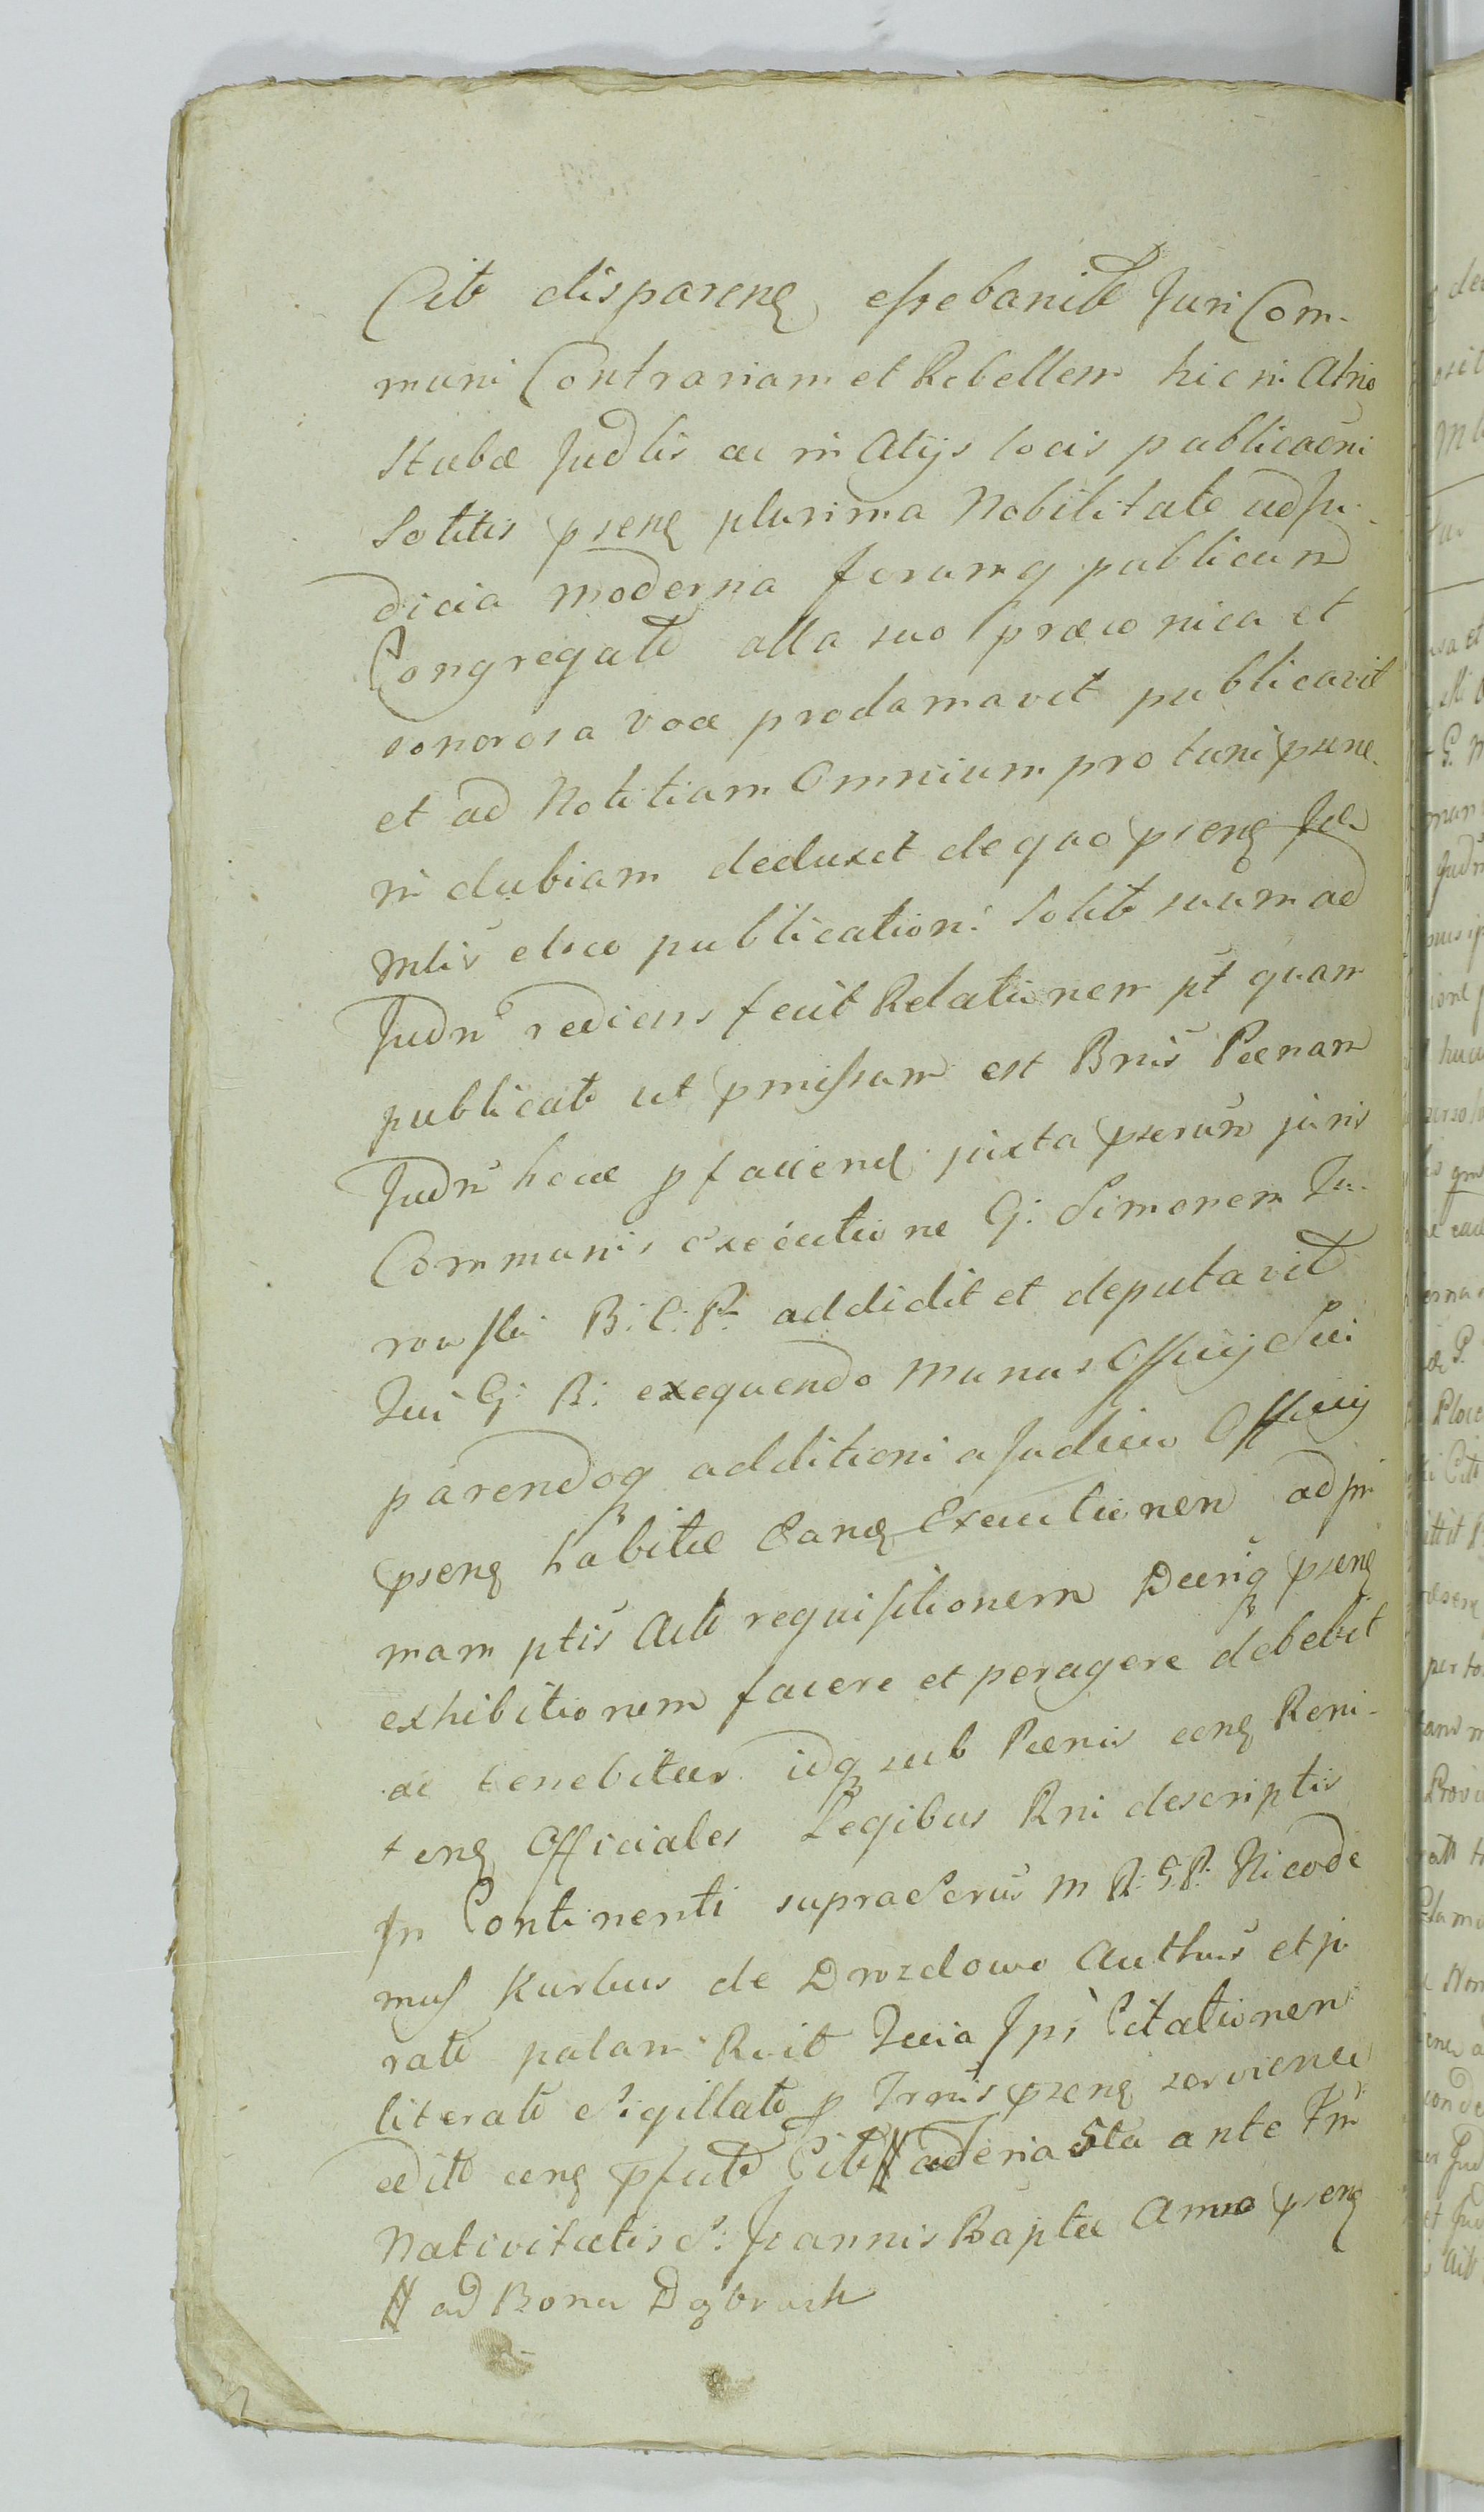 Citt disparenq esse banitt Juri Com-
muni Contrariam et Rebellem hic in Atrio
Stubæ Judlis ac in Alijs locis publicaōni
Solitis psenq plurima Nobilitate ad Ju-
dicia moderna forumq publicum
Congregatt alta suo præconica et
sonorosa voce proclamavit publicavit
et ad Notitiam Omnium pro tunc psene
in dubiam deduxit de quo psenq
Mlis elsco publicationi Solitt suum ad
Judm rediens fecit Relationem pt quam
publicatt ut pmissum est Bnis Pœnam
Judm hocce p faciend juxta pserūm juris
Communis executione G: Simonem Tu-
rowski B: C: P: addidit et deputavit
Qui G: B: exequendo munus Officij Sui
parendoq additioni a Judicio Officij
psenq habitæ Eanq Executionem ad pri
mam ptis Actt requisitionem Decriq psenq
exhibitionem facere et peragere debebit
ac tenebitur idq sub Pœnis cenq Reni-
tenq Officiales Legibus Rni descriptis
In Continenti supraScrūs M R: G: P: Nicode
mus Kurbus de Drozdowo Authus et ju
ratt palam Rcit Quia Ipse Citationem
literatt Sigillatt p Trmis psenq servience
editt cenq psutt Citt # ad eria 5ta ante Fm
Nativitatis S: Joannis Baptæ Anno psenq
# ad Bona Dąbrosk